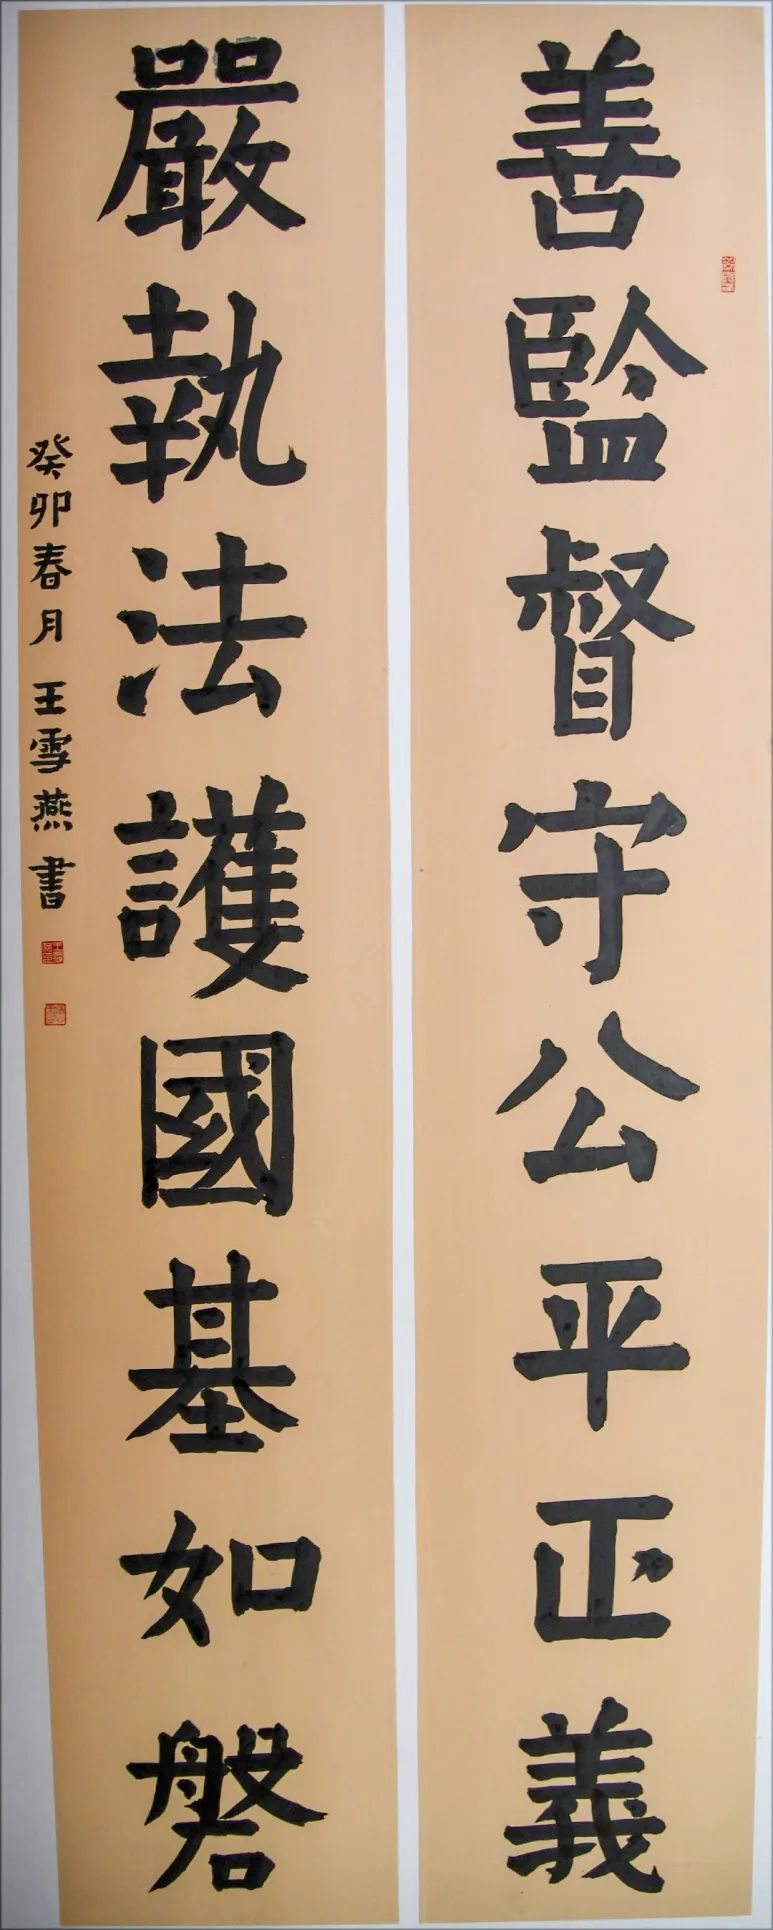 善監督守公平正義
嚴執法護國基如磐
癸卯春月 王雪燕書